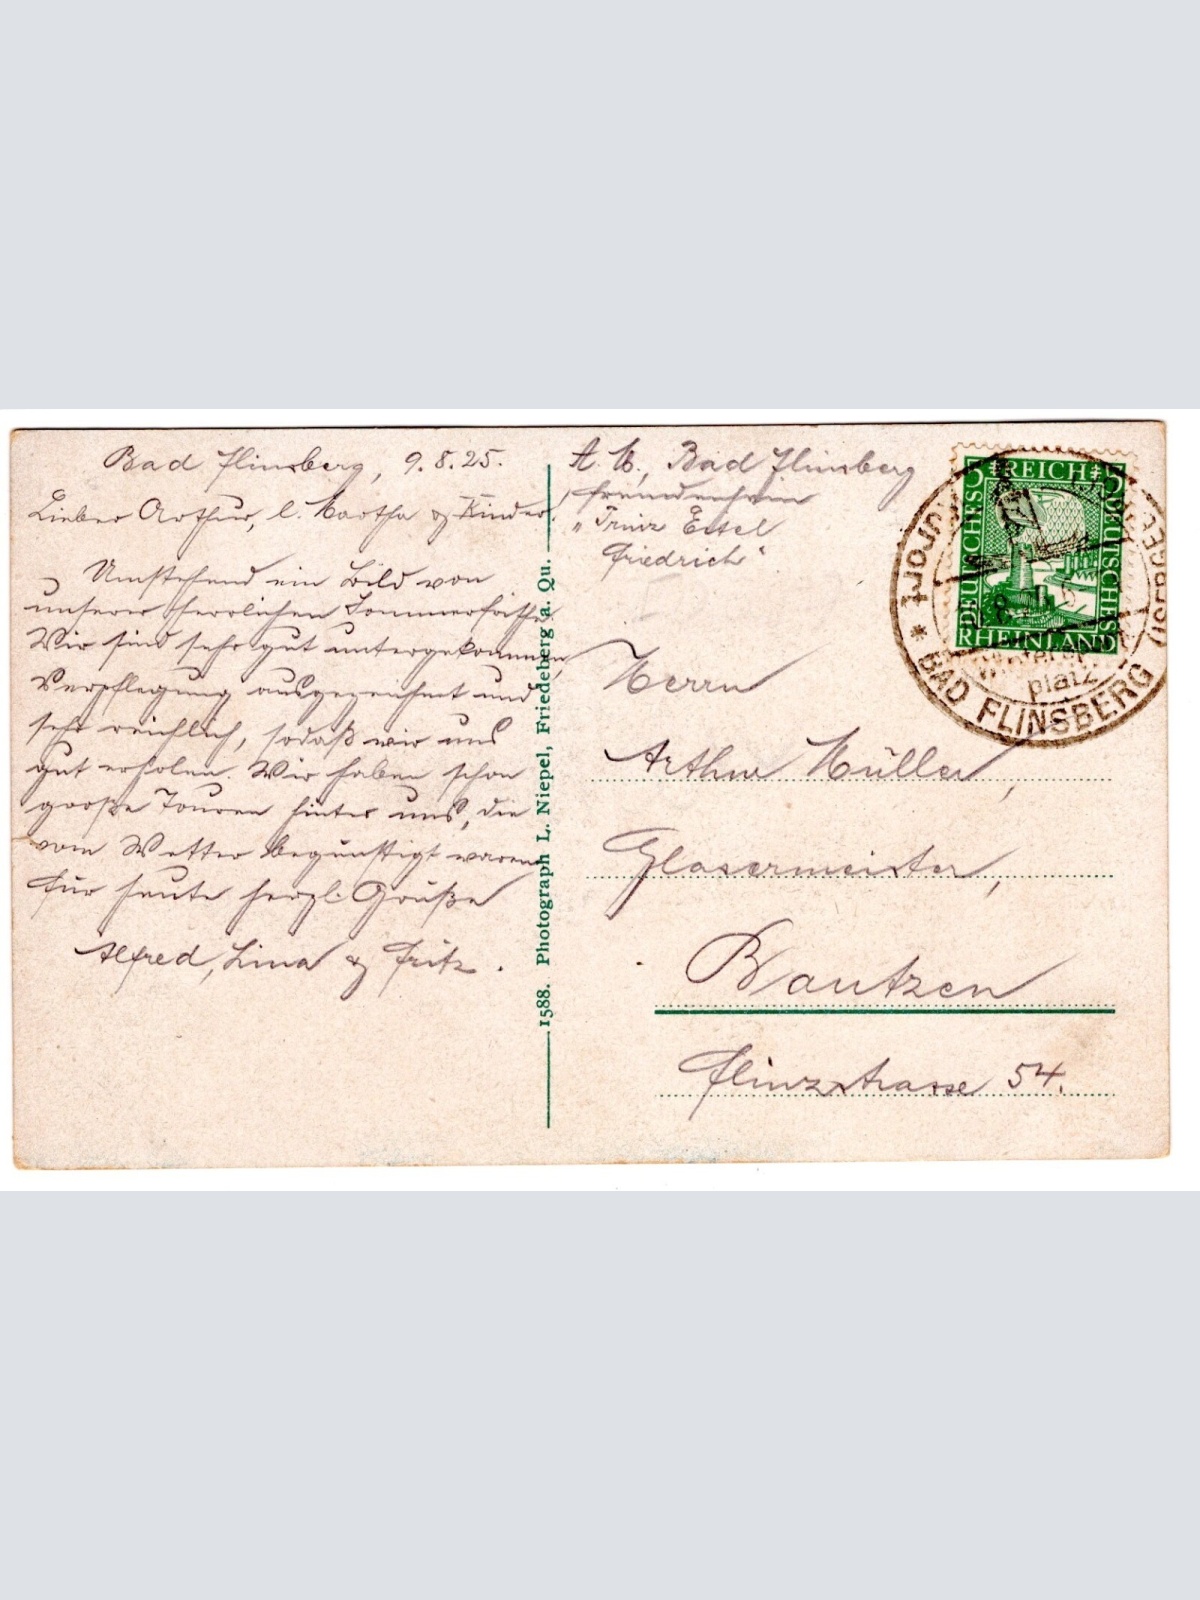 Bad Flinsberg, 9.8.25.
Lieber Arthur, l. Martha & Kinder.
Umstehend ein Bild von
unserer herrlichen Sommerfrische
Wir sind sehr gut untergekommen,
Verpflegung ausgezeichnet und
sehr reichlich, sodaß wir uns
gut erholen. Wir haben schon
große Touren hinter uns, die
vom Wetter begünstigt waren
Für heute herzl. Grüße
Alfred, Lina & Fritz.
1588. Photograph L. Niepel, Friedeberg a. Qu.
A. M., Bad Flinsberg
Fremdenheim
"Prinz Eitel
Friedrich"
DEUTSCHES REICH DEUTSCHES
5 5
RHEINLAND
BAD FLINSBERG (ISERGEB.
platz
Herrn
Arthur Müller,
Glasermeister,
Bautzen
Flinzstrasse 54.